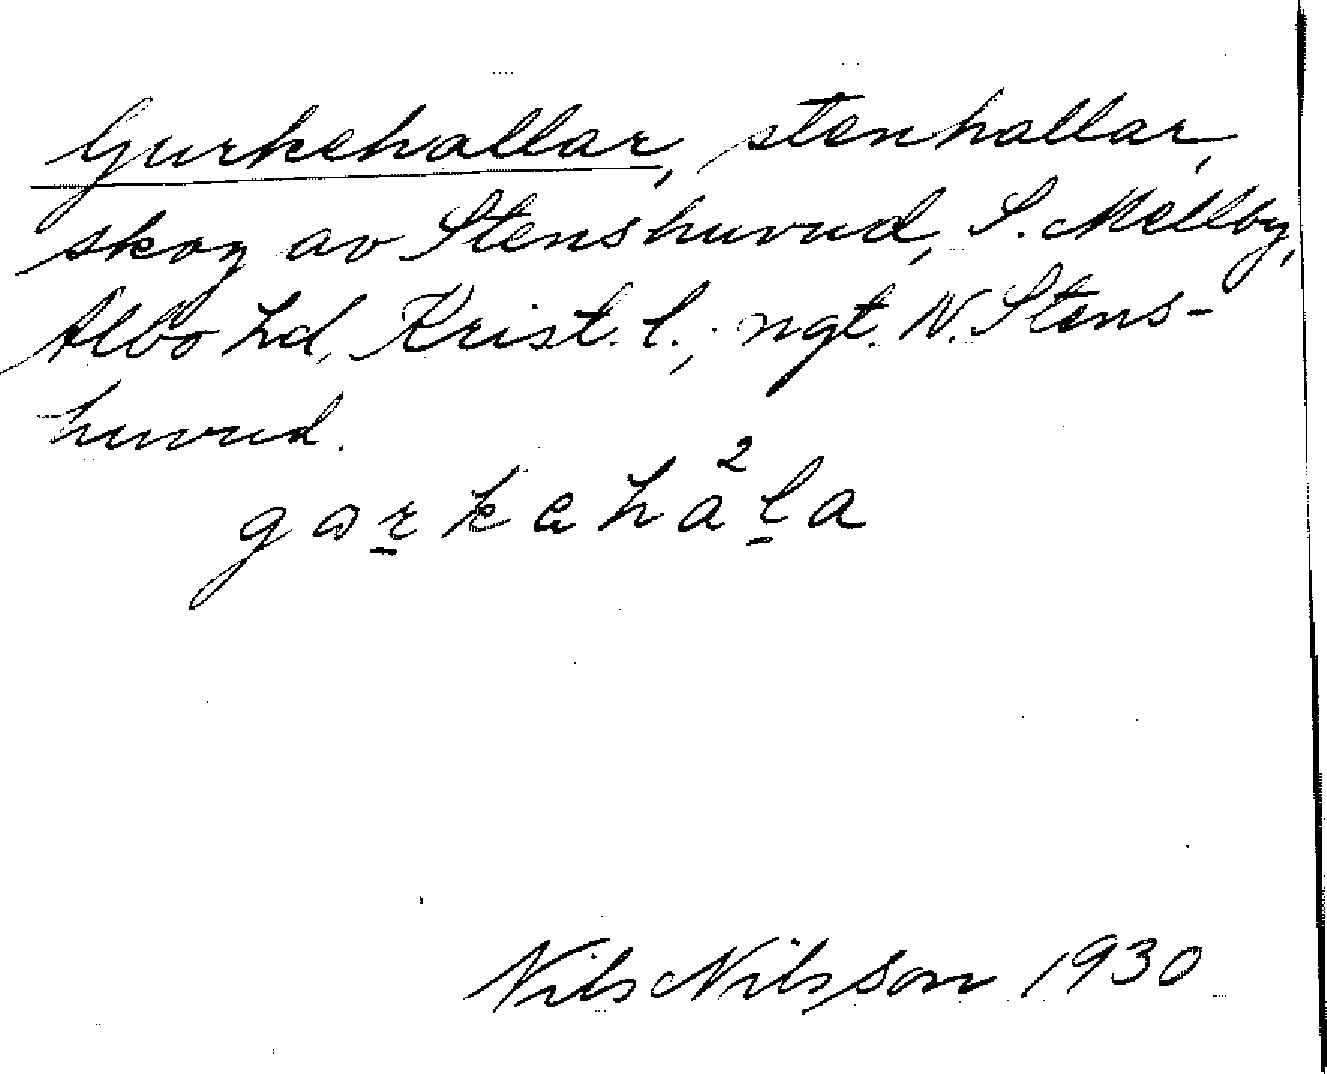 Gurkehallar, stenhallar,
skog av Stenshuvud, S. Mellby,
Albo hd, Krist. l.; ngt. N. Stens-
huvud.
Nils Nilsson 1930